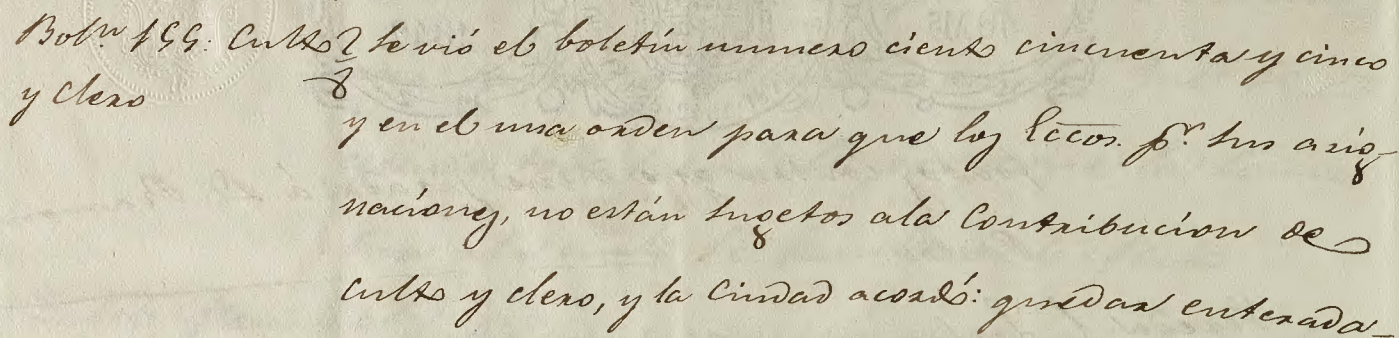 Bolⁿ 155: Culto
y clero
Se vió el boletín numero ciento cincuenta y cinco
y en el una orden para que los Eccos. pʳ. sus asig-
naciones, no están sugetos ala Contribucion de
culto y clero, y la Ciudad acordó: quedar enterada_